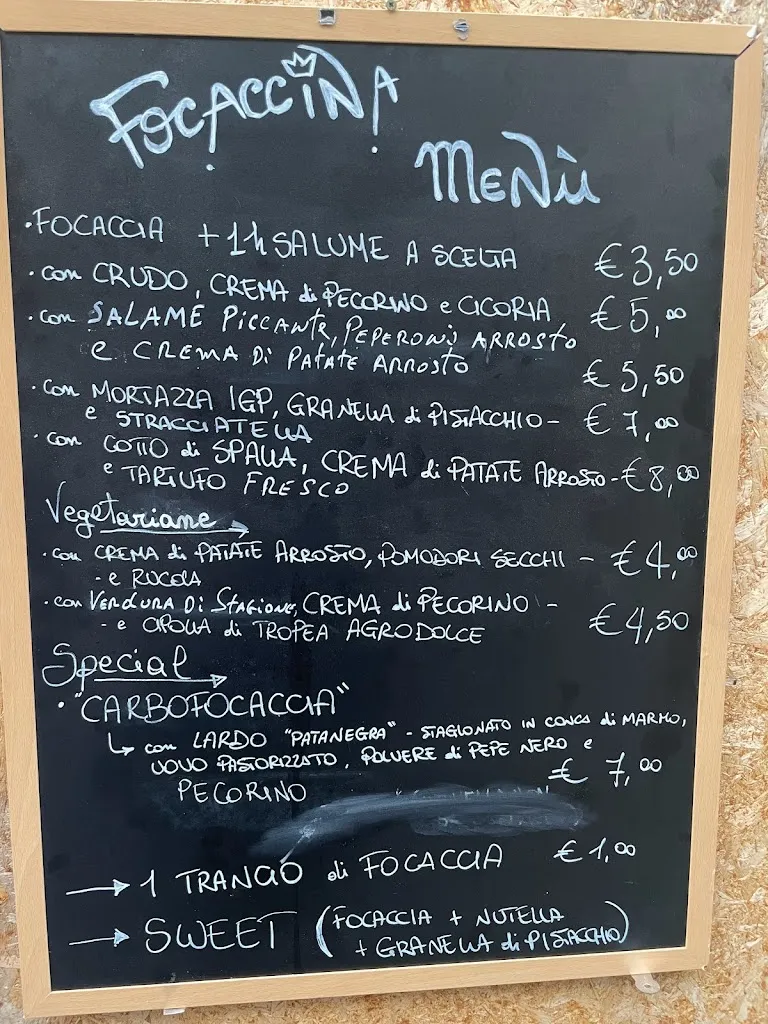 FOCACCINA
MENÙ
• FOCACCIA + 1h SALUME A SCELTA € 3,50
• con CRUDO, CREMA di PECORINO e CICORIA € 5,00
• con SALAME PICCANTE, PEPERONI ARROSTO
e CREMA DI PATATE ARROSTO € 5,50
• con MORTAZZA IGP, GRANELLA di PISTACCHIO - € 7,00
e STRACCIATELLA
• con COTTO di SPALLA, CREMA di PATATE ARROSTO - € 8,00
e TARTUFO FRESCO
Vegetariane →
• con CREMA di PATATE ARROSTO, POMODORI SECCHI - € 4,00
- e RUCOLA
• con VERDURA DI STAGIONE, CREMA di PECORINO - € 4,50
- e CIPOLLA di TROPEA AGRODOLCE
Special →
• "CARBOFOCACCIA"
↳ con LARDO "PATANEGRA" - STAGIONATO IN CONCA di MARMO,
UOVO PASTORIZZATO, POLVERE di PEPE NERO e
PECORINO € 7,00
→ 1 TRANCIO di FOCACCIA € 1,00
→ SWEET (FOCACCIA + NUTELLA
+ GRANELLA di PISTACCHIO)